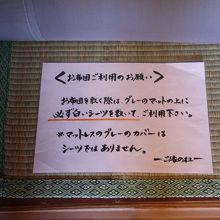 ＜お布団ご利用のお願い＞
お布団を敷く際は、グレーのマットの上に
必ず白いシーツを敷いて、ご利用下さい。
※マットレスのグレーのカバーは
シーツではありません。